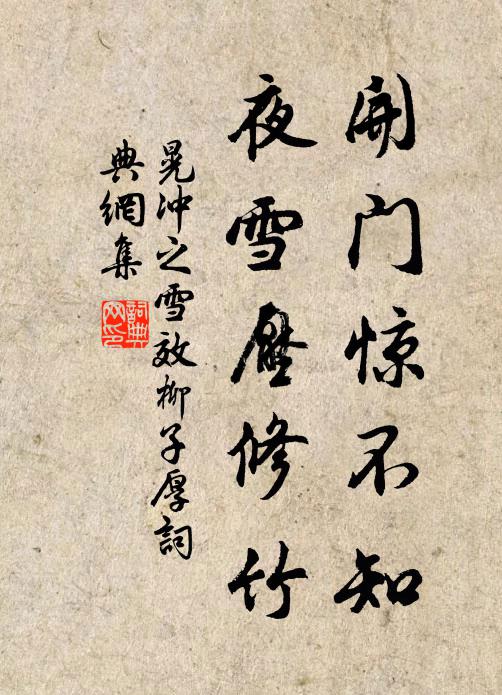 開门惊不知
夜雪壓修竹
晁冲之雪效柳子厚詞
典網集
詞典
网印